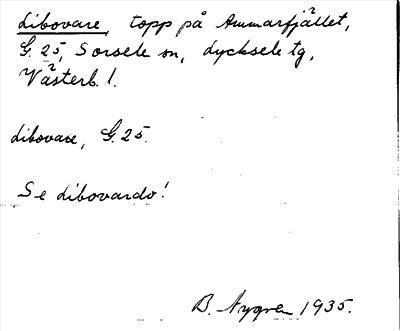 Libovare, topp på Ammarfjället,
G. 25, Sorsele sn, Lycksele tg,
Västerb. l.
Libovare, G. 25.
Se Libovardo!
B. 1935.